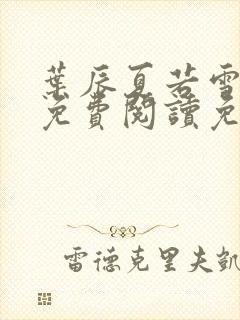 葉辰夏若雪
免費閱讀免
雷德克里夫凱